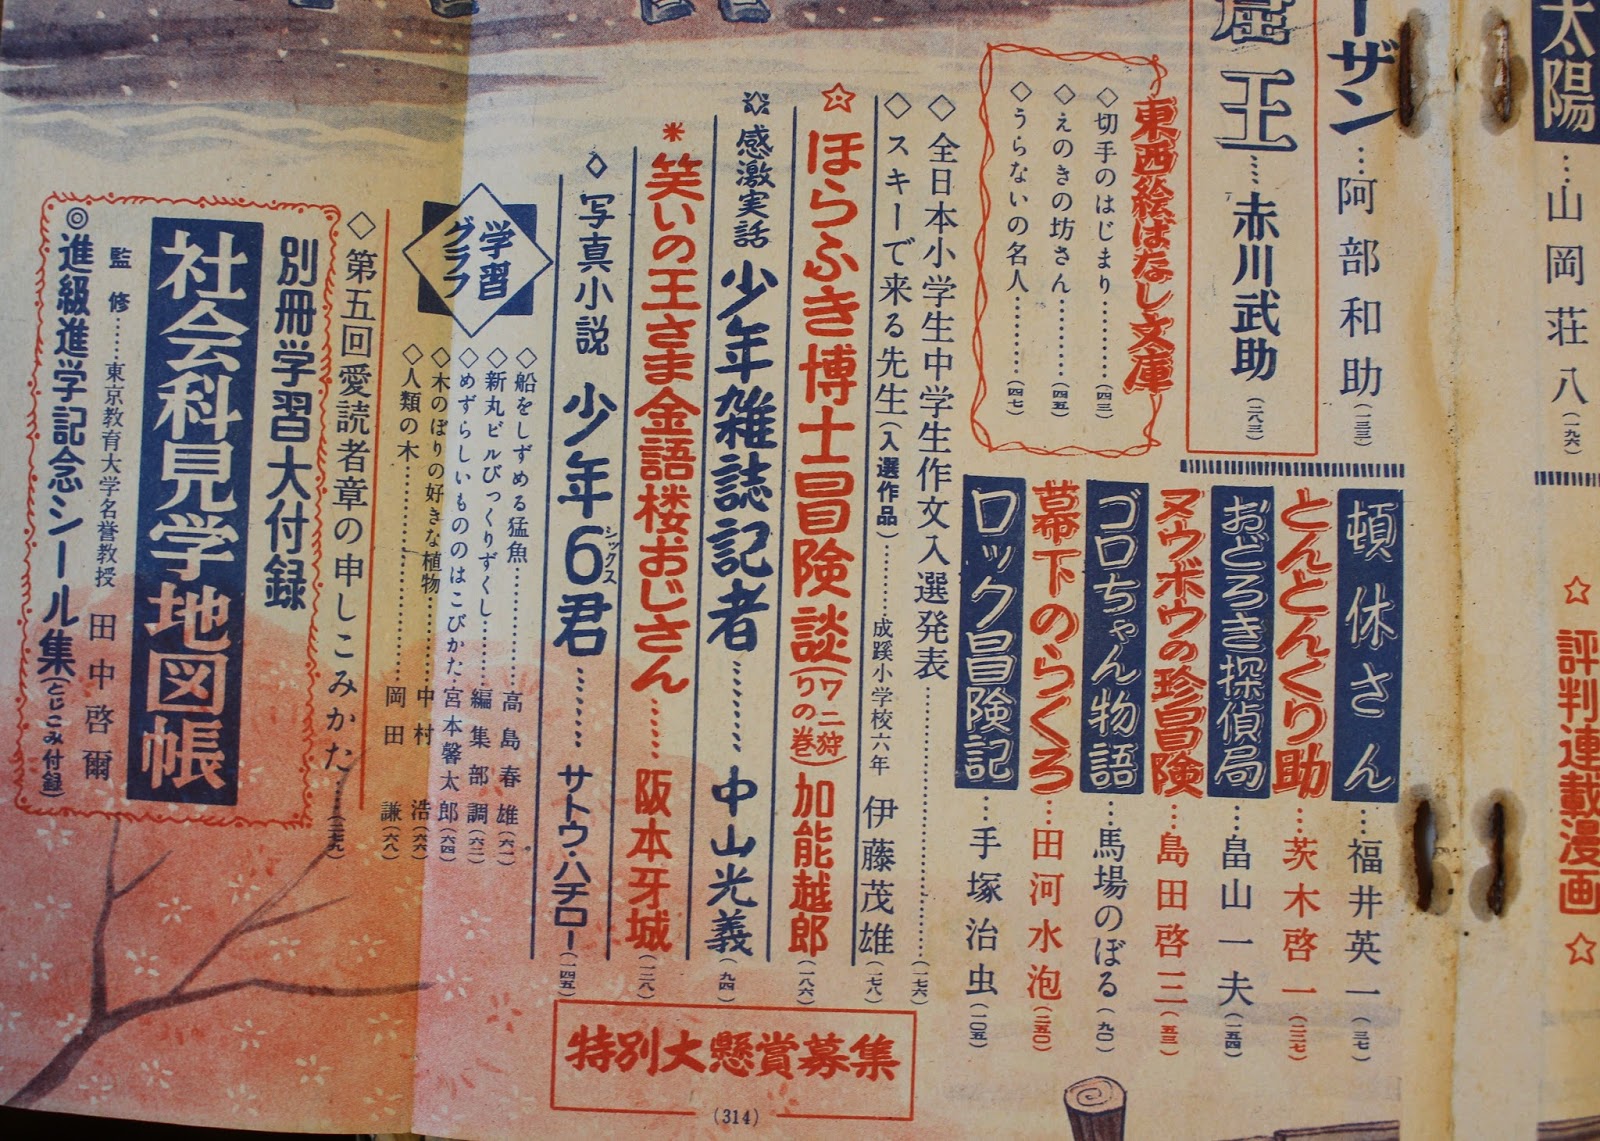 太陽…山岡荘八(一九六)
☆評判連載漫画☆
ーザン…阿部和助(一三三)
窟王…赤川武助(二八三)
東西絵ばなし文庫
◇切手のはじまり…………(四三)
◇えのきの坊さん…………(四五)
◇うらないの名人…………(四七)
頓休さん…福井英一(三七)
とんとんくり助…茨木啓一(二二七)
おどろき探偵局…畠山一夫(一五四)
ヌウボウの珍冒険…島田啓三(五三)
ゴロちゃん物語…馬場のぼる(九〇)
幕下のらくろ…田河水泡(二五〇)
ロック冒険記…手塚治虫(一〇五)
◇全日本小学生中学生作文入選発表…………(一七六)
◇スキーで来る先生(入選作品)…………成蹊小学校六年 伊藤茂雄(一七八)
☆ほらふき博士冒険談(ワニ狩りの巻)加能越郎(一八六)
感激実話 少年雑誌記者………中山光義(九四)
*笑いの王さま金語楼おじさん……阪本牙城(一二八)
◇写真小説 少年6君………サトウ・ハチロー(一四五)
シックス
学習グラフ
◇船をしずめる猛魚…………高島春雄(六一)
◇新丸ビルびっくりずくし………編集部調(六二)
◇めずらしいもののはこびかた…宮本馨太郎(六四)
◇木のぼりの好きな植物…………中村浩(六六)
◇人類の木…………………岡田謙(六八)
◇第五回愛読者章の申しこみかた………(二七九)
別冊学習大付録
社会科見学地図帳
監修……東京教育大学名誉教授 田中啓爾
◎進級進学記念シール集(とじこみ付録)
特別大懸賞募集
(314)